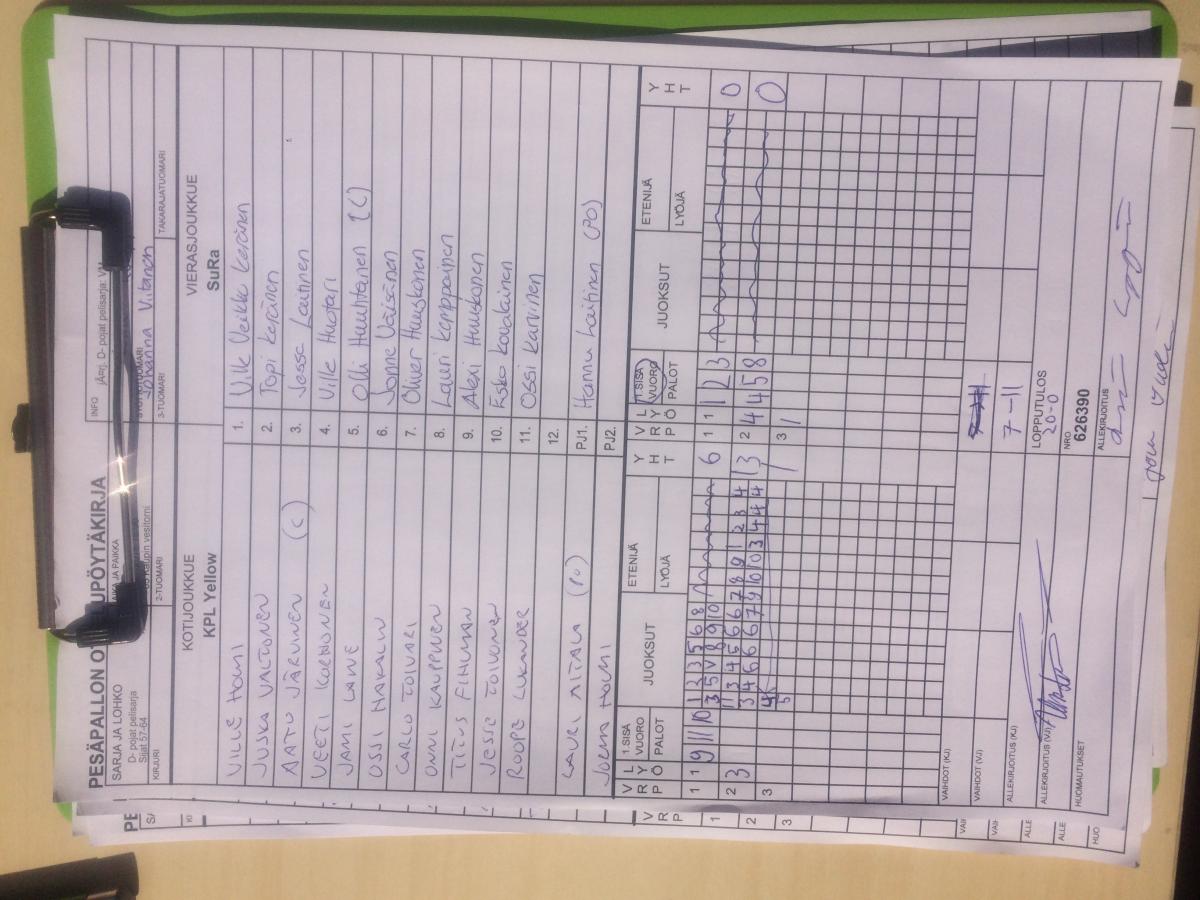 PESÄPALLON OT LUPÖYTÄKIRJA
SARJA JA LOHKO
D- pojat pelisarja
Sijat 57-64
AIKA JA PAIKKA
Kaupin vesitorni
INFO
D- pojat pelisarja:
KIRJURI
2-TUOMARI
Johanna Vitanen
3-TUOMARI
TAKARAJATUOMARI
KOTIJOUKKUE
KPL Yellow
VIERASJOUKKUE
SuRa
VILLE HOVI 1. Ville Veikko Keränen
JUSKA VALTONEN 2. Topi Keränen
AATU JÄRVINEN (C) 3. Jesse Laitinen
VEETI KORHONEN 4. Ville Huotari
JAMI LAINE 5. Olli Huuhtanen (C)
OSSI HAKALIN 6. Janne Väisänen
CARLO TOIVARI 7. Oliver Huuskonen
ONNI KAUPPINEN 8. Lauri Kemppainen
TIITUS 9. Alexi Huuskonen
JESSE TOIVONEN 10. Esko Kovalainen
ROOPE LUKANDER 11. Ossi Karvinen
12.
LAURI AITALA (PJ) PJ1. Hannu Laitinen (POJ)
JORMA HOVI PJ2.
VRP LYÖ 1.SISÄ VUORO PALOT JUOKSUT ETENIJÄ LYÖJÄ YHT
VRP LYÖ 1.SISÄ VUORO PALOT JUOKSUT ETENIJÄ LYÖJÄ YHT
1 1 9 11 10 1 2 3 5 6 8 6
3 5 V 8 9 10
1 1 1 2 3 0
2 3 1 3 4 5 6 6 7 8 9 1 2 3 4 13
3 4 6 6 6 7 9 0 0 3 4 4 4
2 4 4 5 8 0
3
3 1
VAIHDOT (KJ)
VAIHDOT (VJ)
7-11
ALLEKIRJOITUS (KJ)
LOPPUTULOS
20-0
ALLEKIRJOITUS (VJ)
NRO
626390
HUOMAUTUKSET
ALLEKIRJOITUS